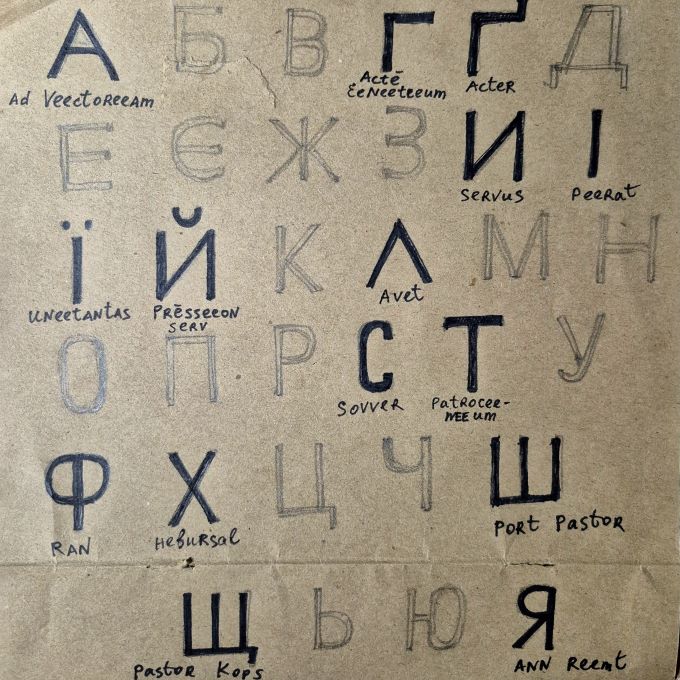 А Б В Г Ґ Д
Ad Veectoreeam Actē Acter
EENeeteeum
Е Є Ж З И І
Servus Peerat
Ї Й К Л М Н
Uneetantas Prēsseeon Avet
serv
О П Р С Т У
Sovver Patrocee-
neeum
Ф Х Ц Ч Ш
Ran Hebursal Port Pastor
Щ Ь Ю Я
Pastor Kops Ann Reemt